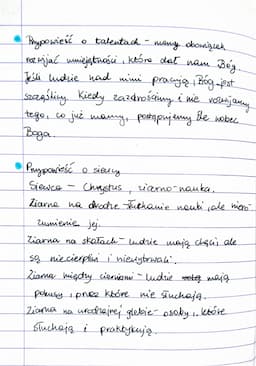 Przypowieść o talentach - mamy obowiązek
rozwijać umiejętności, które dał nam Bóg.
Jeśli ludzie nad nimi pracują, Bóg jest
szczęśliwy. Kiedy zazdrościmy i nie rozwijamy
tego, co już mamy, postępujemy źle wobec
Boga.
Przypowieść o siewcy
Siewca - Chrystus, ziarno - nauka.
Ziarna na drodze - słuchanie nauki, ale niezro-
zumienie jej.
Ziarna na skałach - ludzie mają chęci, ale
są niecierpliwi i niewytrwali.
Ziarna między cierniami - ludzie mają
pokusy, przez które nie słuchają.
Ziarna na urodzajnej glebie - osoby, które
słuchają i praktykują.